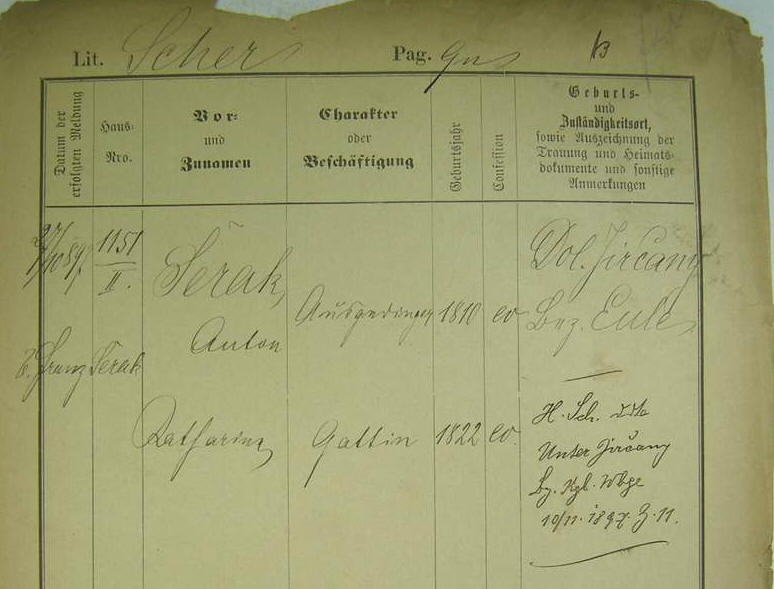 Lit. Scher Pag.
Datum der erfolgten Meldung
Haus-
Nro.
Vor-
und
Zunamen
Charakter
oder
Beschäftigung
Geburtsjahr
Confession
Geburts-
und
Zuständigkeitsort,
sowie Auszeichnung der
Trauung und Heimats-
dokumente und sonstige
Anmerkungen
1151
II.
Šerak,
Anton
Ausgedinger 1810
Dol. Jirčany
Bez. Eule
Franz Šerak
Katharina Gattin 1822
H. Sch. dto
Unter Jirčany
Bz. Kgl. Wbge
10/11. 1897. Z. 11.